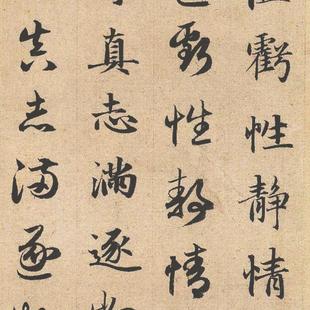 虧性静情
虧性静情
真志滿逐
真志滿逐